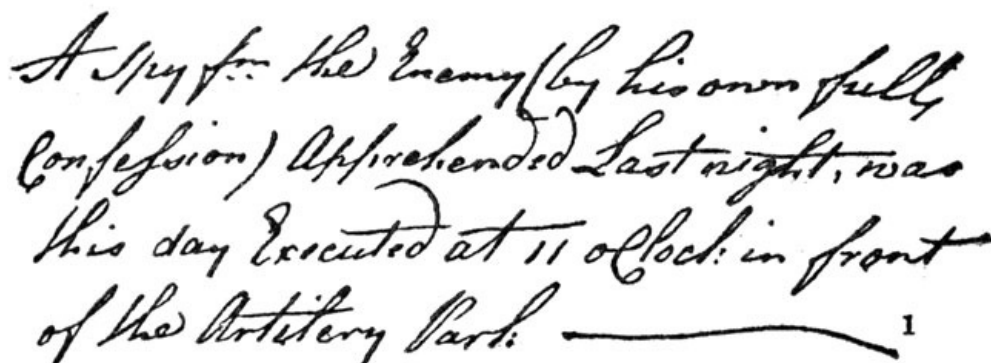 A spy fm the Enemy (by his own full
Confession) Apprehended Last night, was
this day Executed at 11 oClock: in front
of the Artilery Park. 1